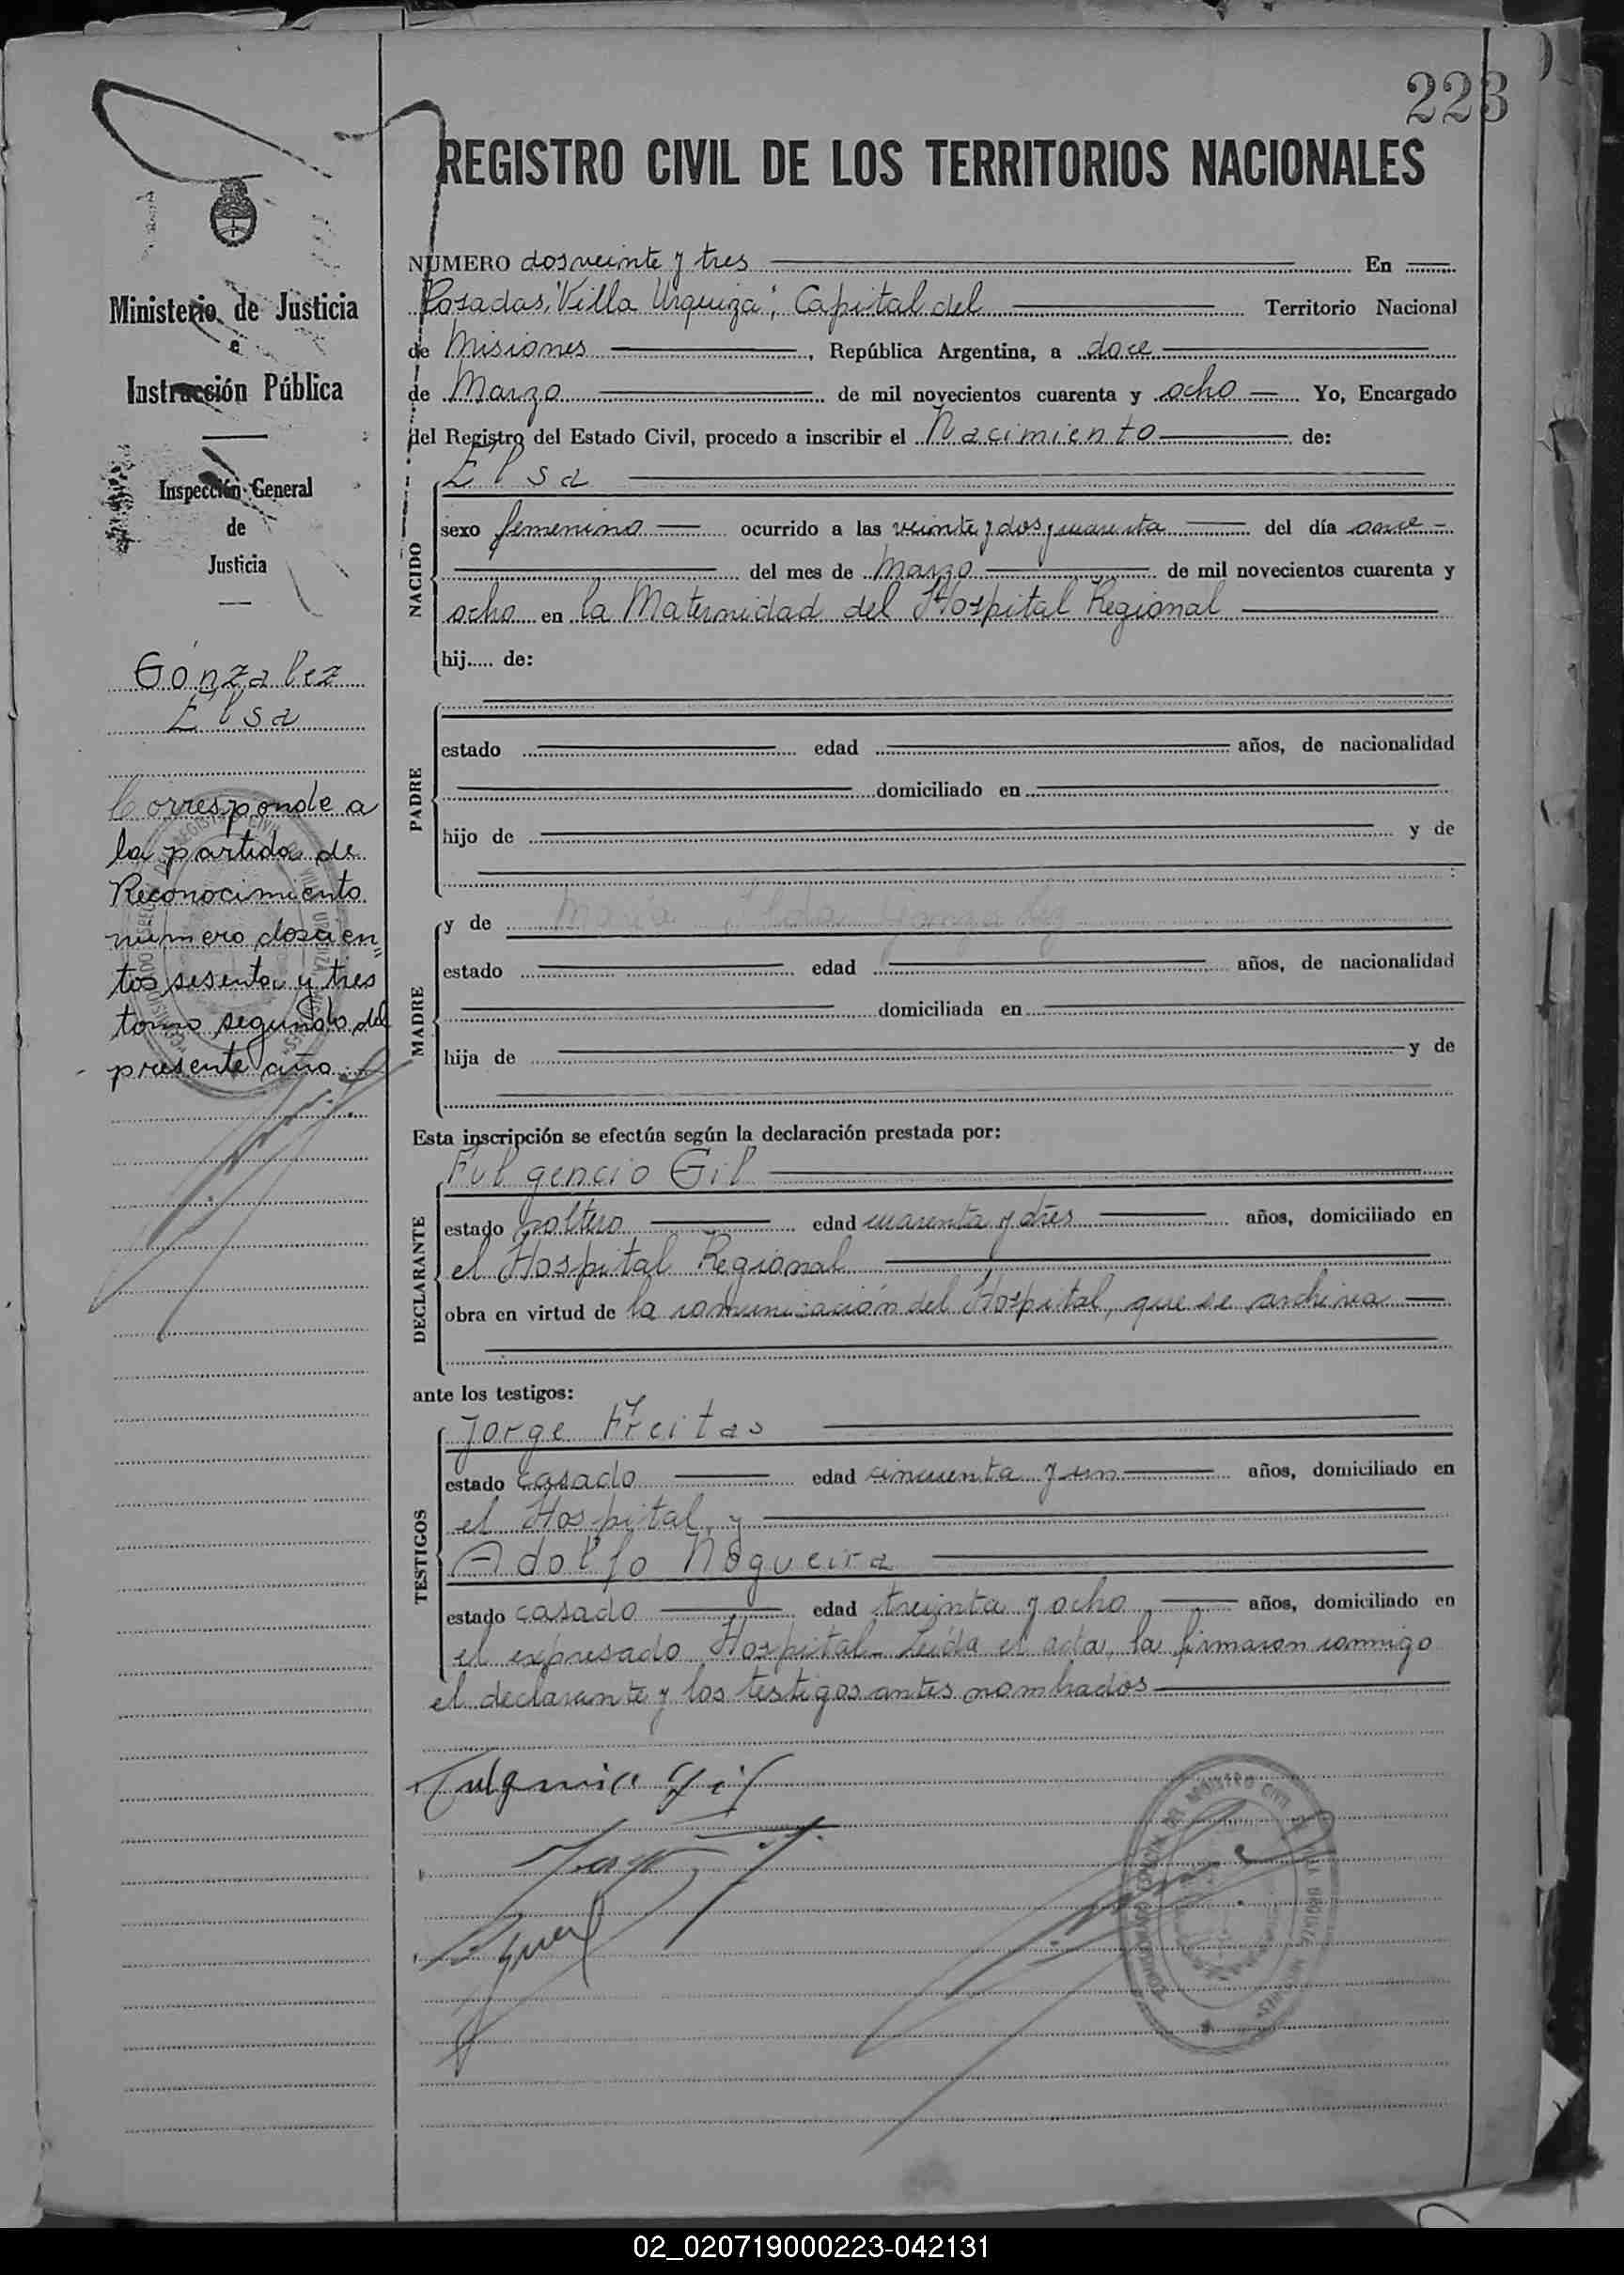 223
REGISTRO CIVIL DE LOS TERRITORIOS NACIONALES
Ministerio de Justicia
e
Instrucción Pública
Inspección General
de
Justicia
Gónzalez
Elsa
Corresponde a
la partida de
Reconocimiento
numero doscien"
tos sesenta y tres
tomo segundo del
presente año
NÚMERO dosveinte y tres En
Posadas, "Villa Urquiza", Capital del Territorio Nacional
de Misiones, República Argentina, a doce
de Marzo de mil novecientos cuarenta y ocho Yo, Encargado
del Registro del Estado Civil, procedo a inscribir el Nacimiento de:
Elsa
NACIDO
sexo femenino ocurrido a las veinte y dos y cuarenta del día once
del mes de Marzo de mil novecientos cuarenta y
ocho en la Maternidad del Hospital Regional
hij..... de:
PADRE
estado edad años, de nacionalidad
domiciliado en
hijo de y de
MADRE
y de Maria Gonzalez
estado edad años, de nacionalidad
domiciliada en
hija de y de
Esta inscripción se efectúa según la declaración prestada por:
Fulgencio Gil
DECLARANTE
estado soltero edad cuarenta y años, domiciliado en
el Hospital Regional
obra en virtud de la comunicación del Hospital, que se archiva
ante los testigos:
Jorge Freitas
TESTIGOS
estado casado edad cincuenta y un años, domiciliado en
el Hospital, y
Adolfo Nogueira
estado casado edad treinta y ocho años, domiciliado en
el expresado Hospital. Leída el acta, la firmaron conmigo
el declarante y los testigos antes nombrados
Fulgencio Gil
02_020719000223-042131